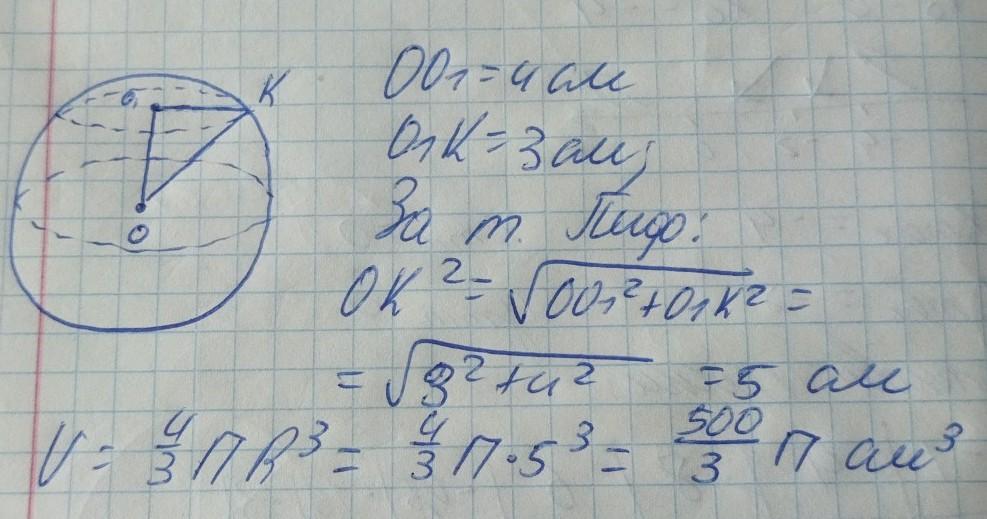 O₁ K
O
OO₁ = 4 см
O₁K = 3 см;
За т. Пифо:
OK² = √(OO₁² + O₁K²) =
= √(3² + 4²) = 5 см
V = 4/3 ПR³ = 4/3 П · 5³ = 500/3 П см³